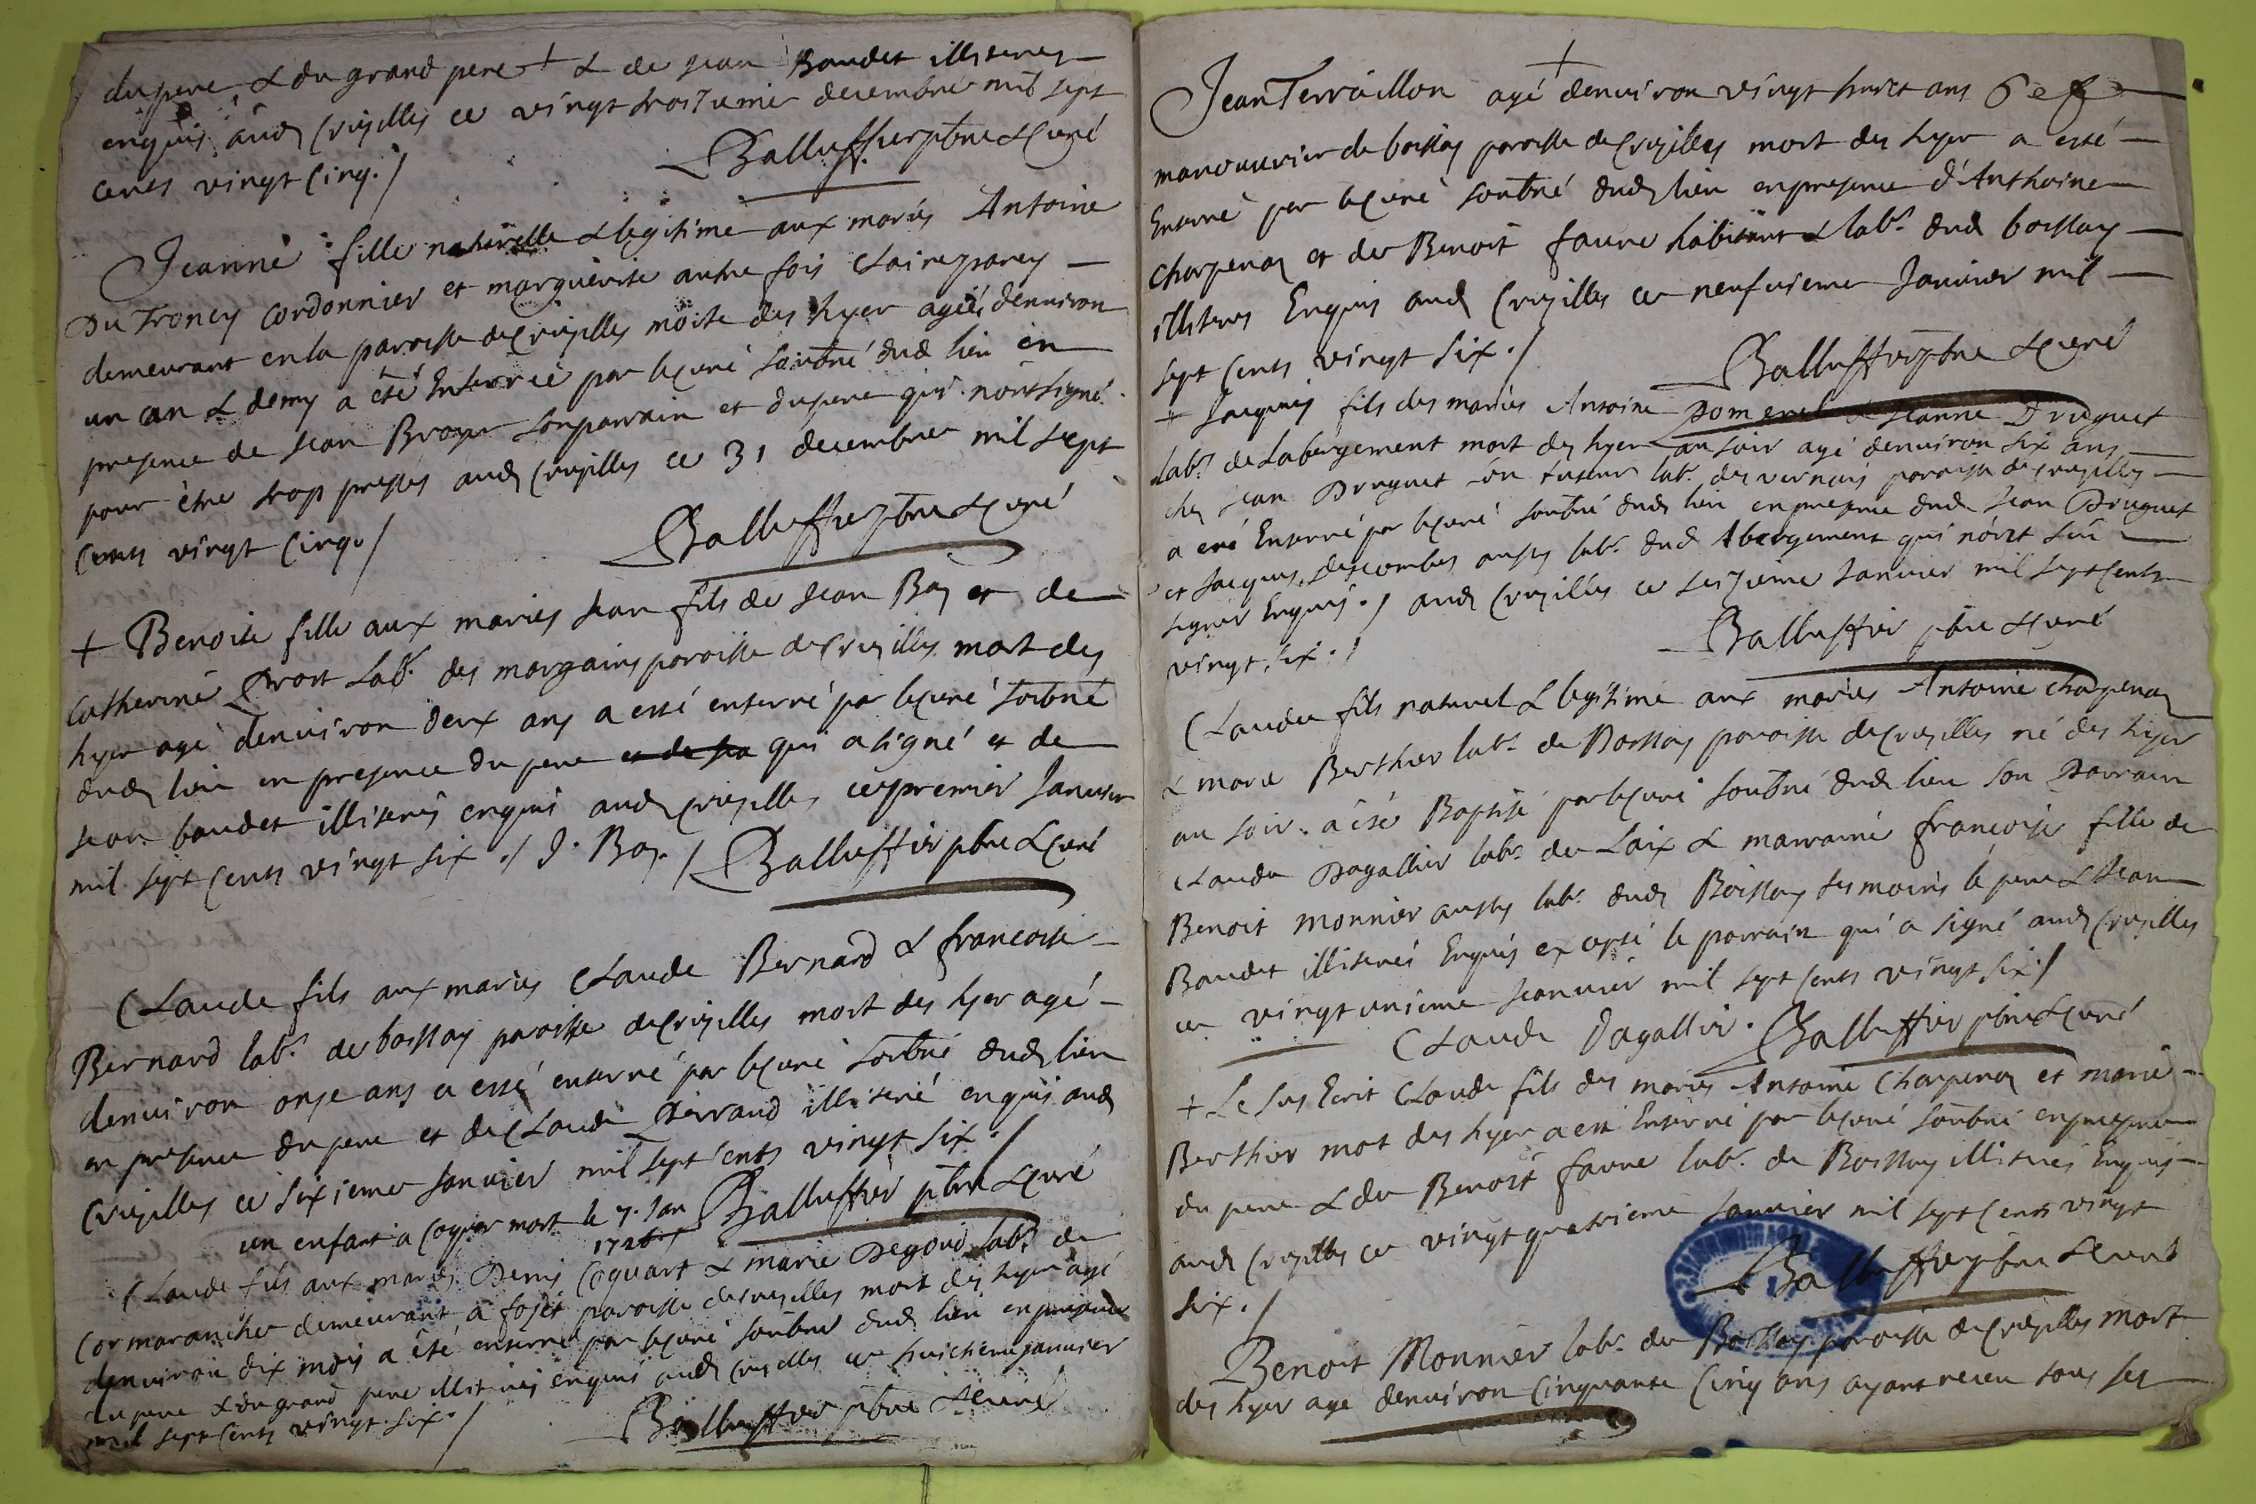 du pere & du grand pere + & de jean Baudet illiterés
enquis aud Crusilles ce vingt troisieme decembre mil sept
cents vingt Cinq ./
Balluffier pbre & Curé
Jeanne fille naturelle & legitime aux mariés Antoine
Du Troncy Cordonnier et marguerite autre fois Claire
demeurant en la paroisse de Crusilles morte des hyer agée denuiron
un an & demy a été Enterrée par le Curé soubné dud lieu en
presence de Jean Broyer son parrain et du pere qui n'ont signé
pour être trop pressés aud Crusilles ce 31 decembre mil sept
Cents vingt Cinq ./
Balluffier pbre & Curé
+ Benoite fille aux mariés jean fils de Jean Boy et de
Catherine Prost Lab.r des margains paroisse de Crusilles mort des
hyer agé denuiron deux ans a esté enterré par le Curé soubné
dud lieu en presence du pere qui a signé et de
jean baudet illiterés enquis aud Crusilles ce premier Januier
mil sept Cents vingt six ./ J. Boy ./ Balluffier pbre & Curé
Claude fils aux mariés Claude Bernard & francoise
Bernard lab.r de boissay paroisse de Crusilles mort des hyer agé
denuiron onze ans a esté enterré par le Curé soubné dud lieu
en presence du pere et de Claude Perraud illiteré enquis aud
Crusilles ce sixieme Januier mil sept cents vingt six ./
un enfant a Coquar mort le 7. Jan
1726
Balluffier pbre & Curé
Claude fils aux mariés Denis Coquart & marie Degoud lab.r de
Cormaranche demeurant a foset paroisse de Crusilles mort des hyer agé
denuiron dix mois a été enterré par le Curé soubné dud lieu en presence
du pere & du grand pere illiterés enquis aud Crusilles ce huictieme januier
mil sept Cents vingt six ./
Balluffier pbre & Curé
+
Jean Terraillon agé denuiron vingt huict ans
manouurier de boissay paroisse de Crusilles mort des hyer a esté
Enterré par le Curé soubné dud lieu en presence d'Anthoine
Charpenay et de Benoit faure habitant & lab.r dud boissay
illiteres Enquis aud Crusilles ce neufuieme Januier mil
sept Cents vingt six ./
Balluffier pbre & Curé
+ Jacques fils des mariés Antoine Pomerel & Jeanne Druguet
lab.r de Labergement mort des hyer au soir agé denuiron six ans
chez Jean Druguet son tuteur lab.r des vernais paroisse de Crusilles
a été Enterré par le Curé soubné dud lieu en presence dud Jean Druguet
et Jacques descombes aussy lab.r dud Abergement qui n'ont sceu
signer Enquis ./ aud Crusilles ce seizieme Januier mil sept Cents
vingt six ./
Balluffier pbre & Curé
Claude fils naturel & legitime aux mariés Antoine Charpenay
& marie Berthier lab.r de Boissay paroisse de Crusilles né des hyer
au soir a été Baptisé par le Curé soubné dud lieu son Parrain
Claude Dagallier lab.r de Laix & marraine francoise fille de
Benoit monnier aussy lab.r dud Boissay tesmoins le pere & Jean
Baudet illiterés Enquis excepté le parrain qui a signé aud Crusilles
ce vingt unieme Januier mil sept Cents vingt six ./
Claude Dagallier. Balluffier pbre & Curé
+ Le sus Ecrit Claude fils des mariés Antoine Charpenay et marie
Berthier mot des hyer a esté Enterré par le Curé soubné en presence
du pere & de Benoit faure lab.r de Boissay illiterés Enquis
aud Crusilles ce vingt quatrieme Januier mil sept Cents vingt
six ./
Balluffier pbre & Curé
Benoit Monnier lab.r de Boissay paroisse de Crusilles mort
des hyer agé denuiron Cinquante Cinq ans ayant receu tous ses